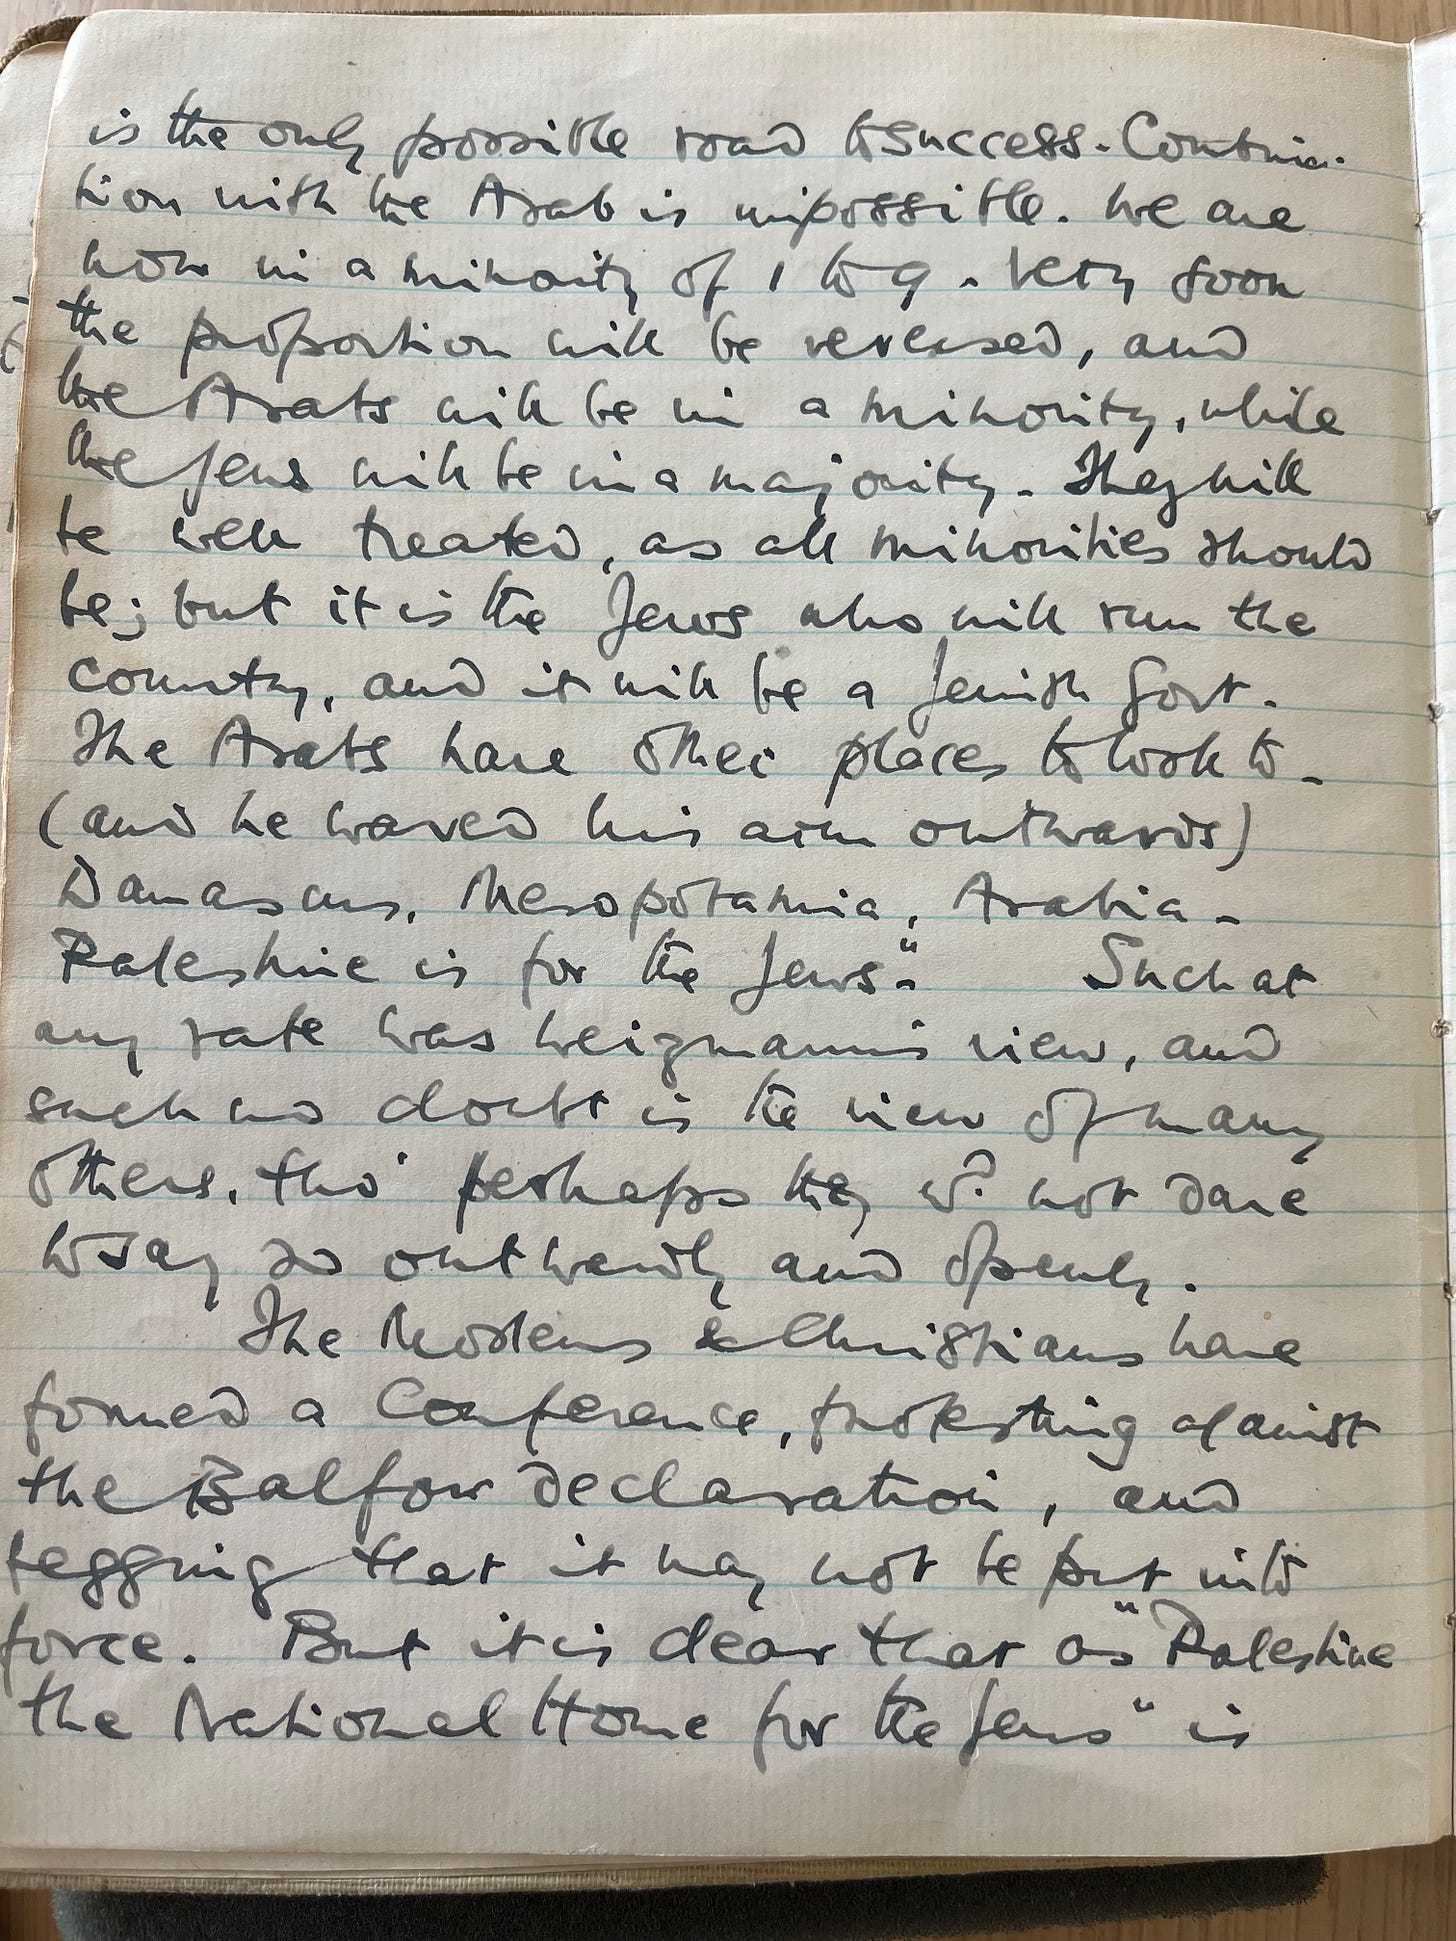 is the only possible road to success. Combina-
tion with the Arab is impossible. We are
now in a minority of 1 to 9. Very soon
the proportion will be reversed, and
the Arabs will be in a minority, while
the Jews will be in a majority. They will
be well treated, as all minorities should
be; but it is the Jews who will run the
country, and it will be a Jewish Govt.
The Arabs have other places to look to -
(and he waved his arm outwards)
Damascus, Mesopotamia, Arabia -
Palestine is for the Jews." Such at
any rate was Weizmann's view, and
such no doubt is the view of many
others, tho' perhaps they wd. not dare
to say so outwardly and openly.
The Moslems & Christians have
formed a Conference, protesting against
the Balfour declaration, and
begging that it may not be put into
force. But it is clear that as "Palestine
the National Home for the Jews" is